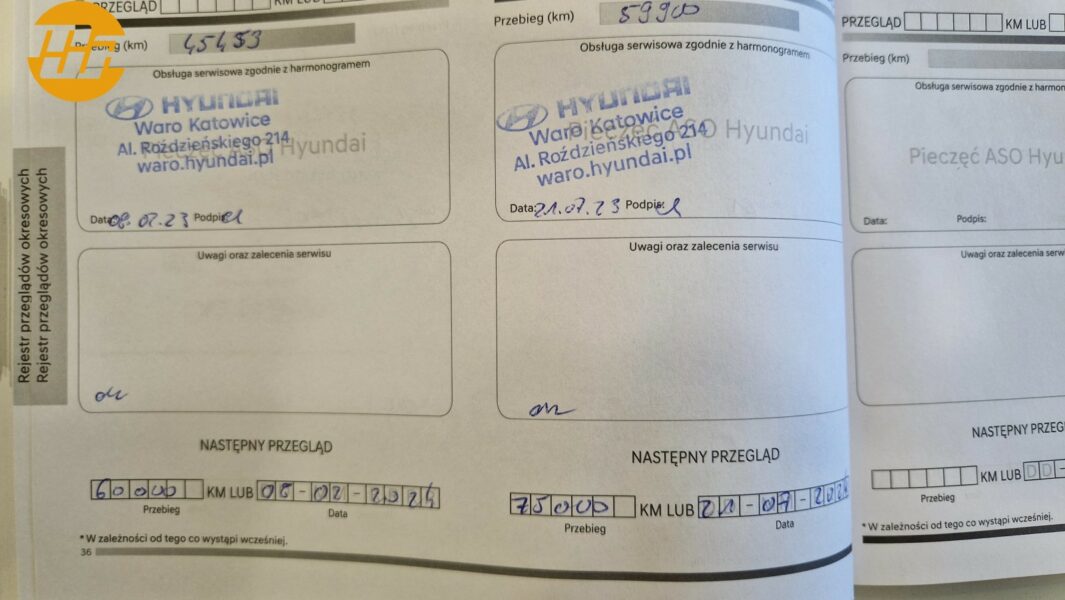 PRZEGLĄD KM LUB
Przebieg (km) 45453
Obsługa serwisowa zgodnie z harmonogramem
HYUNDAI
Waro Katowice
Al. Roździeńskiego 214
waro.hyundai.pl
Pieczęć ASO Hyundai
Data: 08.02.23 Podpis:
Uwagi oraz zalecenia serwisu
ok
NASTĘPNY PRZEGLĄD
60000 KM LUB 08-02-2024
Przebieg Data
* W zależności od tego co wystąpi wcześniej.
36
Rejestr przeglądów okresowych
Rejestr przeglądów okresowych
Przebieg (km) 59900
Obsługa serwisowa zgodnie z harmonogramem
HYUNDAI
Waro Katowice
Al. Roździeńskiego 214
waro.hyundai.pl
Pieczęć ASO Hyundai
Data: 21.07.23 Podpis:
Uwagi oraz zalecenia serwisu
NASTĘPNY PRZEGLĄD
75000 KM LUB 21-07-2024
Przebieg Data
PRZEGLĄD KM LUB
Przebieg (km)
Obsługa serwisowa zgodnie z harmon
Pieczęć ASO Hyu
Data: Podpis:
Uwagi oraz zalecenia serw
NASTĘPNY PRZEG
KM LUB DD-
Przebieg
* W zależności od tego co wystąpi wcześniej.